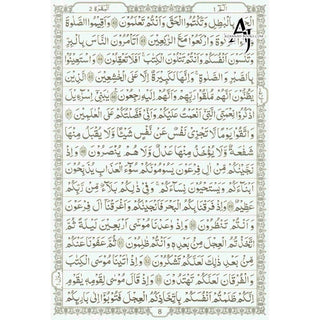 البقرة ٢ الٓمّٓ ١
الْحَقَّ بِالْبَاطِلِ وَتَكْتُمُوا الْحَقَّ وَاَنْتُمْ تَعْلَمُوْنَ وَاَقِيْمُوا الصَّلٰوةَ
وَاٰتُوا الزَّكٰوةَ وَارْكَعُوْا مَعَ الرّٰكِعِيْنَ اَتَاْمُرُوْنَ النَّاسَ بِالْبِرِّ
وَتَنْسَوْنَ اَنْفُسَكُمْ وَاَنْتُمْ تَتْلُوْنَ الْكِتٰبَ اَفَلَا تَعْقِلُوْنَ وَاسْتَعِيْنُوْا
بِالصَّبْرِ وَالصَّلٰوةِ وَاِنَّهَا لَكَبِيْرَةٌ اِلَّا عَلَى الْخٰشِعِيْنَ الَّذِيْنَ
يَظُنُّوْنَ اَنَّهُمْ مُّلٰقُوْا رَبِّهِمْ وَاَنَّهُمْ اِلَيْهِ رٰجِعُوْنَ يٰبَنِيْٓ اِسْرَآءِيْلَ
اذْكُرُوْا نِعْمَتِيَ الَّتِيْٓ اَنْعَمْتُ عَلَيْكُمْ وَاَنِّيْ فَضَّلْتُكُمْ عَلَى الْعٰلَمِيْنَ
وَاتَّقُوْا يَوْمًا لَّا تَجْزِيْ نَفْسٌ عَنْ نَّفْسٍ شَيْئًا وَّلَا يُقْبَلُ مِنْهَا
شَفَاعَةٌ وَّلَا يُؤْخَذُ مِنْهَا عَدْلٌ وَّلَا هُمْ يُنْصَرُوْنَ وَاِذْ
نَجَّيْنٰكُمْ مِّنْ اٰلِ فِرْعَوْنَ يَسُوْمُوْنَكُمْ سُوْٓءَ الْعَذَابِ يُذَبِّحُوْنَ
اَبْنَآءَكُمْ وَيَسْتَحْيُوْنَ نِسَآءَكُمْ وَفِيْ ذٰلِكُمْ بَلَآءٌ مِّنْ رَّبِّكُمْ
عَظِيْمٌ وَاِذْ فَرَقْنَا بِكُمُ الْبَحْرَ فَاَنْجَيْنٰكُمْ وَاَغْرَقْنَآ اٰلَ فِرْعَوْنَ
وَاَنْتُمْ تَنْظُرُوْنَ وَاِذْ وٰعَدْنَا مُوْسٰٓى اَرْبَعِيْنَ لَيْلَةً ثُمَّ
اتَّخَذْتُمُ الْعِجْلَ مِنْۢ بَعْدِهٖ وَاَنْتُمْ ظٰلِمُوْنَ ثُمَّ عَفَوْنَا عَنْكُمْ
مِّنْۢ بَعْدِ ذٰلِكَ لَعَلَّكُمْ تَشْكُرُوْنَ وَاِذْ اٰتَيْنَا مُوْسَى الْكِتٰبَ
وَالْفُرْقَانَ لَعَلَّكُمْ تَهْتَدُوْنَ وَاِذْ قَالَ مُوْسٰى لِقَوْمِهٖ يٰقَوْمِ
اِنَّكُمْ ظَلَمْتُمْ اَنْفُسَكُمْ بِاتِّخَاذِكُمُ الْعِجْلَ فَتُوْبُوْٓا اِلٰى بَارِئِكُمْ
8